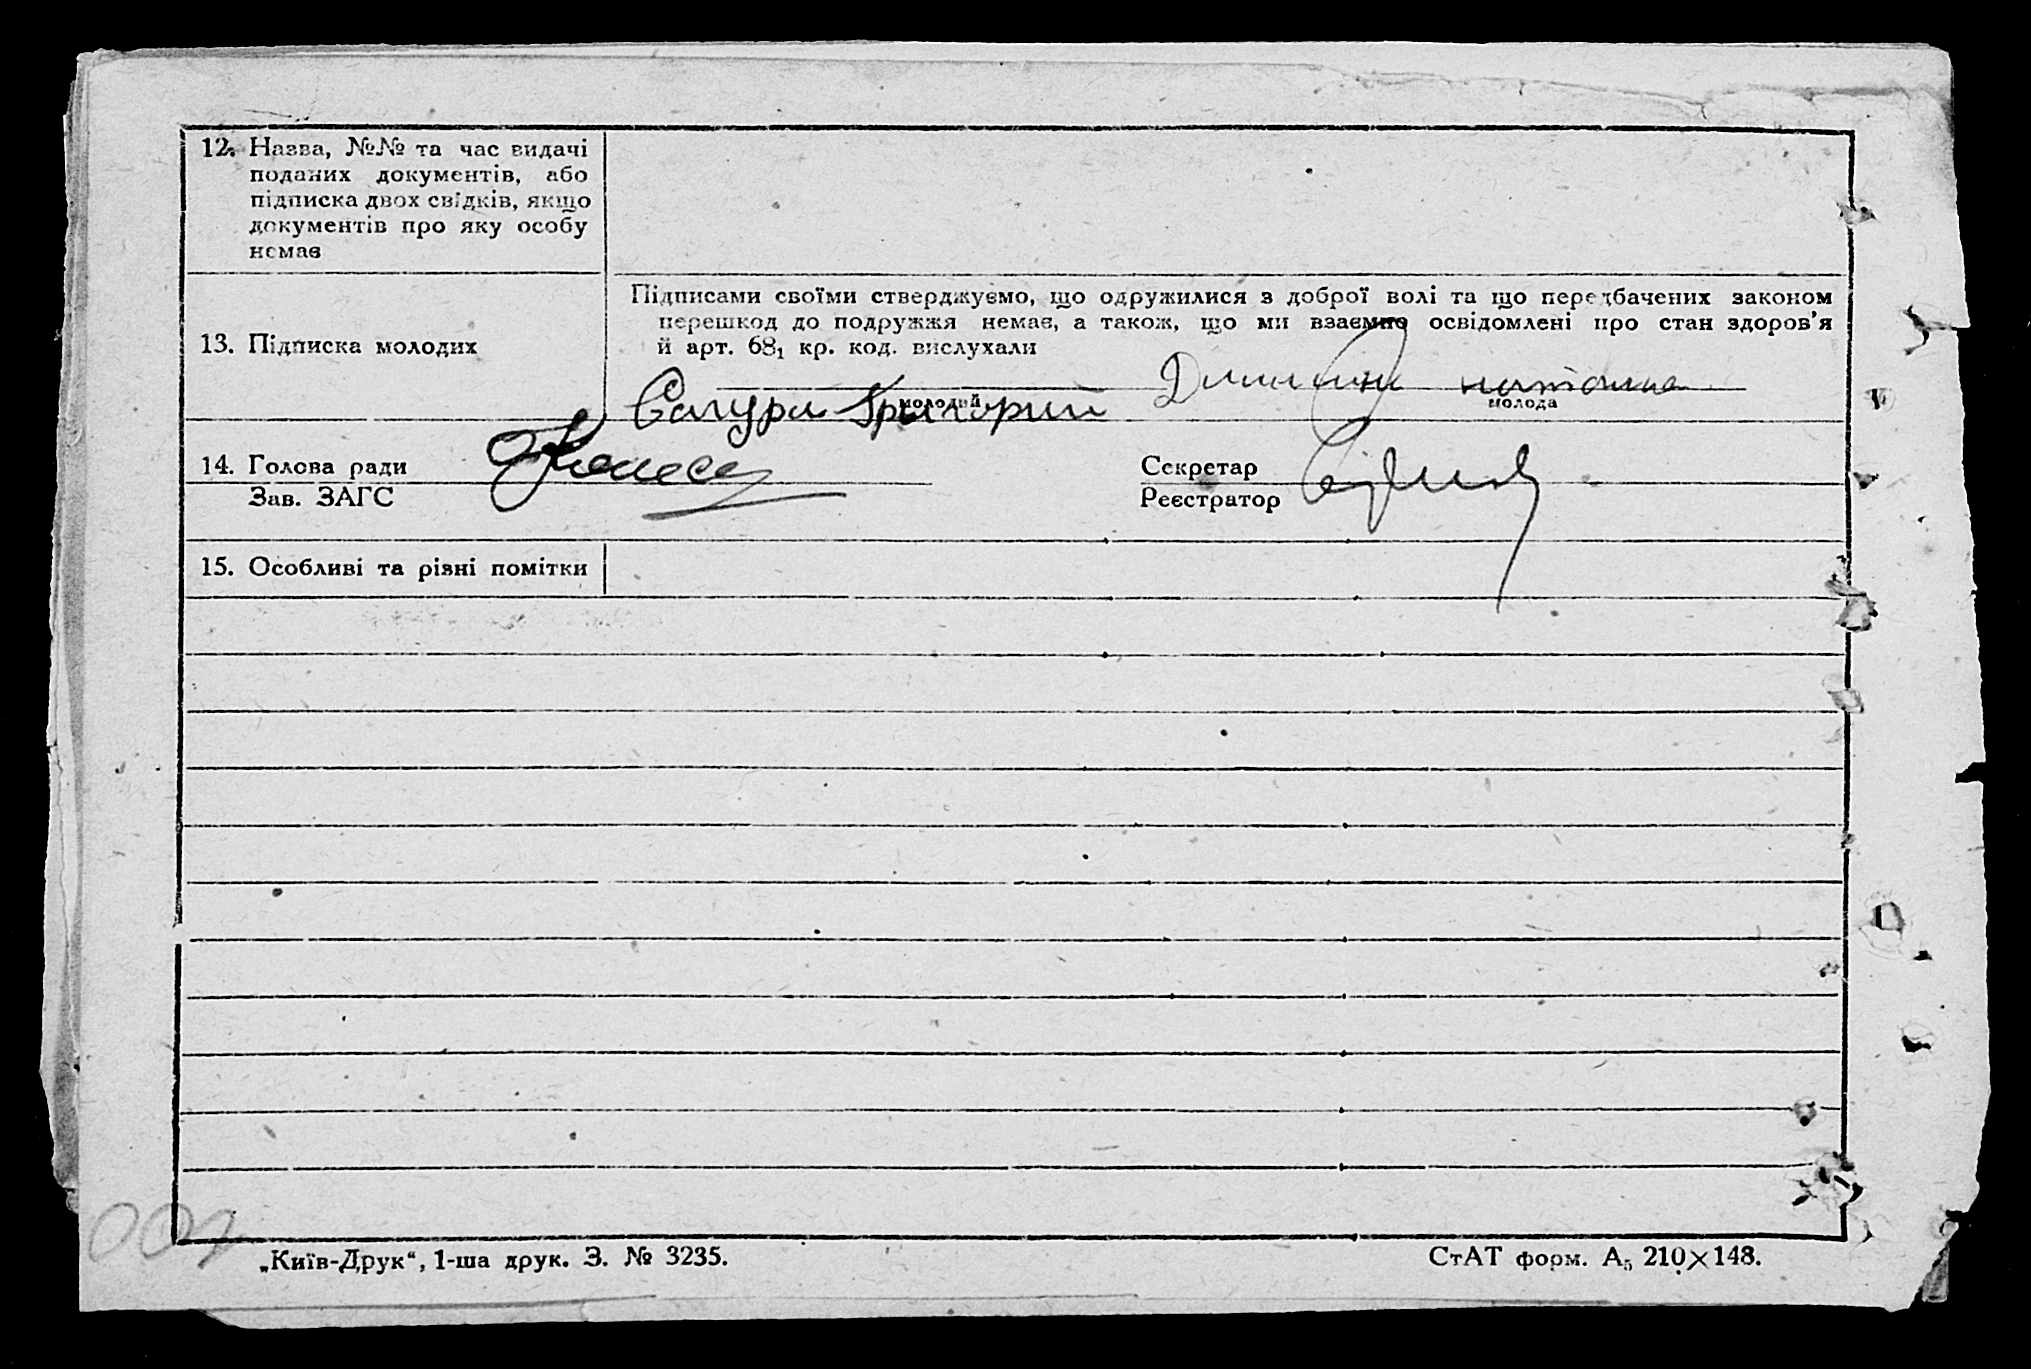 12. Назва, №№ та час видачі
поданих документів, або
підписка двох свідків, якщо
документів про яку особу
немає
Підписами своїми стверджуємо, що одружилися з доброї волі та що передбачених законом
перешкод до подружжя немає, а також, що ми взаємно освідомлені про стан здоров'я
й арт. 68₁ кр. код. вислухали
13. Підписка молодих
Григорий
молодий
молода
14. Голова ради
Зав. ЗАГС
Секретар
Реєстратор
15. Особливі та різні помітки
„Київ-Друк“, 1-ша друк. З. № 3235.
СтАТ форм. А₅ 210×148.